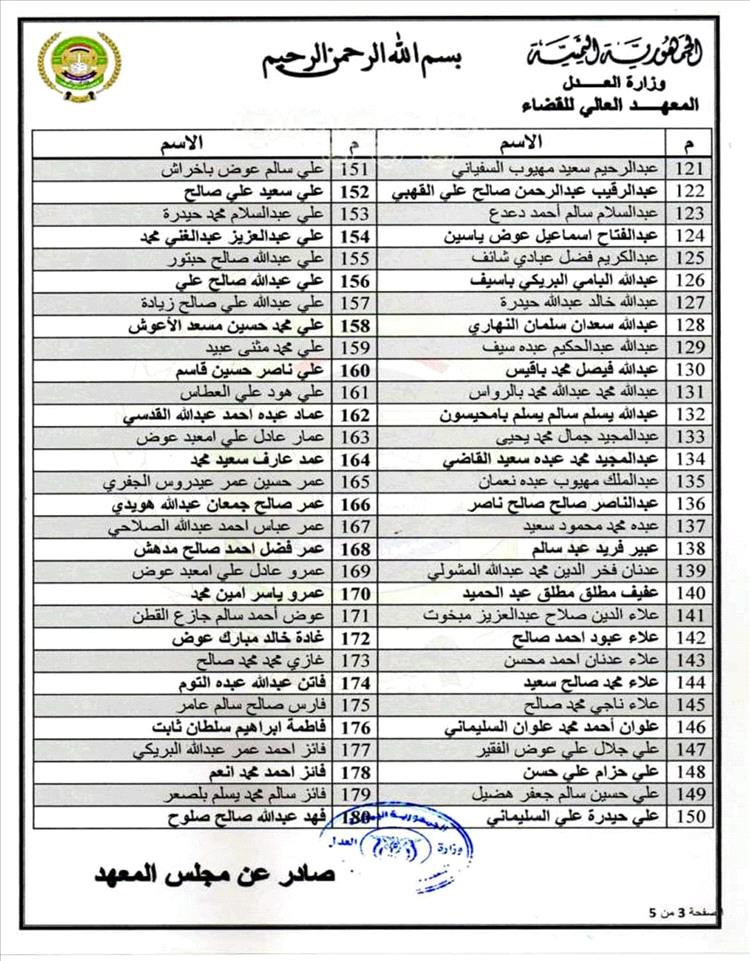 الجمهورية اليمنية
وزارة العدل
المعهد العالي للقضاء
بسم الله الرحمن الرحيم
م الاسم م الاسم
121 عبدالرحيم سعيد مهيوب السفياني 151 علي سالم عوض باخراش
122 عبدالرقيب عبدالرحمن صالح علي القهبي 152 علي سعيد علي صالح
123 عبدالسلام سالم أحمد دعدع 153 علي عبدالسلام محمد حيدرة
124 عبدالفتاح اسماعيل عوض ياسين 154 علي عبدالعزيز عبدالغني محمد
125 عبدالكريم فضل عبادي شانف 155 علي عبدالله صالح حبتور
126 عبدالله البامي البريكي باسيف 156 علي عبدالله صالح علي
127 عبدالله خالد عبدالله حيدرة 157 علي عبدالله علي صالح زيادة
128 عبدالله سعدان سلمان النهاري 158 علي محمد حسين مسعد الأعوش
129 عبدالله عبدالحكيم عبده سيف 159 علي محمد مثنى عبيد
130 عبدالله فيصل محمد باقيس 160 علي ناصر حسين قاسم
131 عبدالله محمد عبدالله محمد بالرواس 161 علي هود علي العطاس
132 عبدالله يسلم سالم يسلم بامحيسون 162 عماد عبده احمد عبدالله القدسي
133 عبدالمجيد جمال محمد يحيى 163 عمار عادل علي امعبد عوض
134 عبدالمجيد محمد عبده سعيد القاضي 164 عمد عارف سعيد محمد
135 عبدالملك مهيوب عبده نعمان 165 عمر حسين عمر عيدروس الجفري
136 عبدالناصر صالح صالح ناصر 166 عمر صالح جمعان عبدالله هويدي
137 عبده محمد محمود سعيد 167 عمر عباس احمد عبدالله الصلاحي
138 عبير فريد عبد سالم 168 عمر فضل احمد صالح مدهش
139 عدنان فخر الدين محمد عبدالله المشولي 169 عمرو عادل علي امعبد عوض
140 عفيف مطلق مطلق عبد الحميد 170 عمرو ياسر امين محمد
141 علاء الدين صلاح عبدالعزيز مبخوت 171 عوض أحمد سالم جازع القطن
142 علاء عبود احمد صالح 172 غادة خالد مبارك عوض
143 علاء عدنان احمد محسن 173 غازي محمد محمد صالح
144 علاء محمد صالح سعيد 174 فاتن عبدالله عبده التوم
145 علاء ناجي محمد صالح 175 فارس صالح سالم عامر
146 علوان أحمد محمد علوان السليماني 176 فاطمة ابراهيم سلطان ثابت
147 علي جلال علي عوض الفقير 177 فائز احمد عمر عبدالله البريكي
148 علي حزام علي حسن 178 فائز احمد محمد انعم
149 علي حسين سالم جعفر هضيل 179 فائز سالم محمد يسلم بلصعر
150 علي حيدرة علي السليماني 180 فهد عبدالله صالح صلوح
الجمهورية اليمنية
وزارة العدل
صادر عن مجلس المعهد
الصفحة 3 من 5